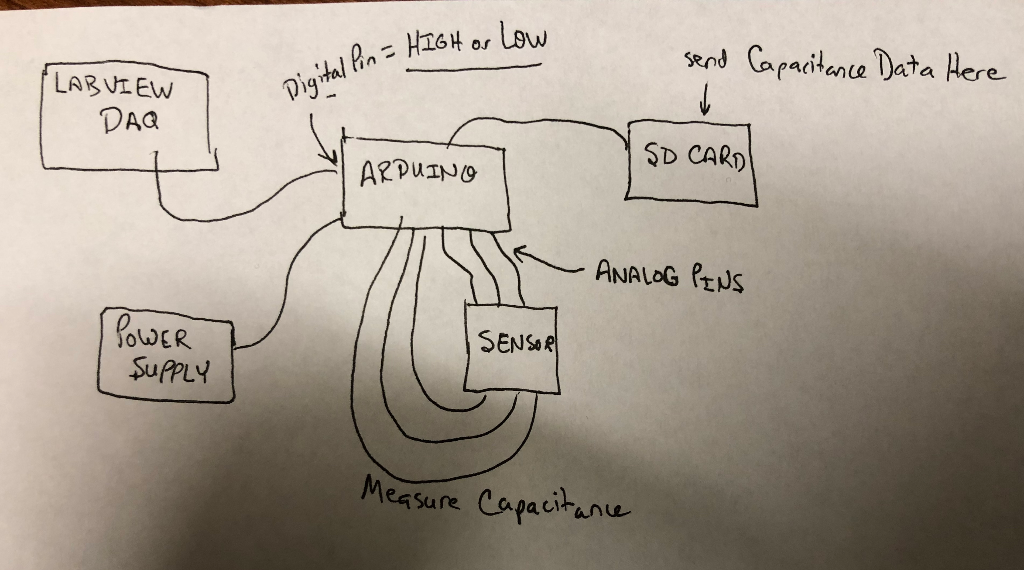 Digital Pin = HIGH or LOW
send Capacitance Data Here
LABVIEW
DAQ
ARDUINO
SD CARD
ANALOG PINS
POWER
SUPPLY
SENSOR
Measure Capacitance